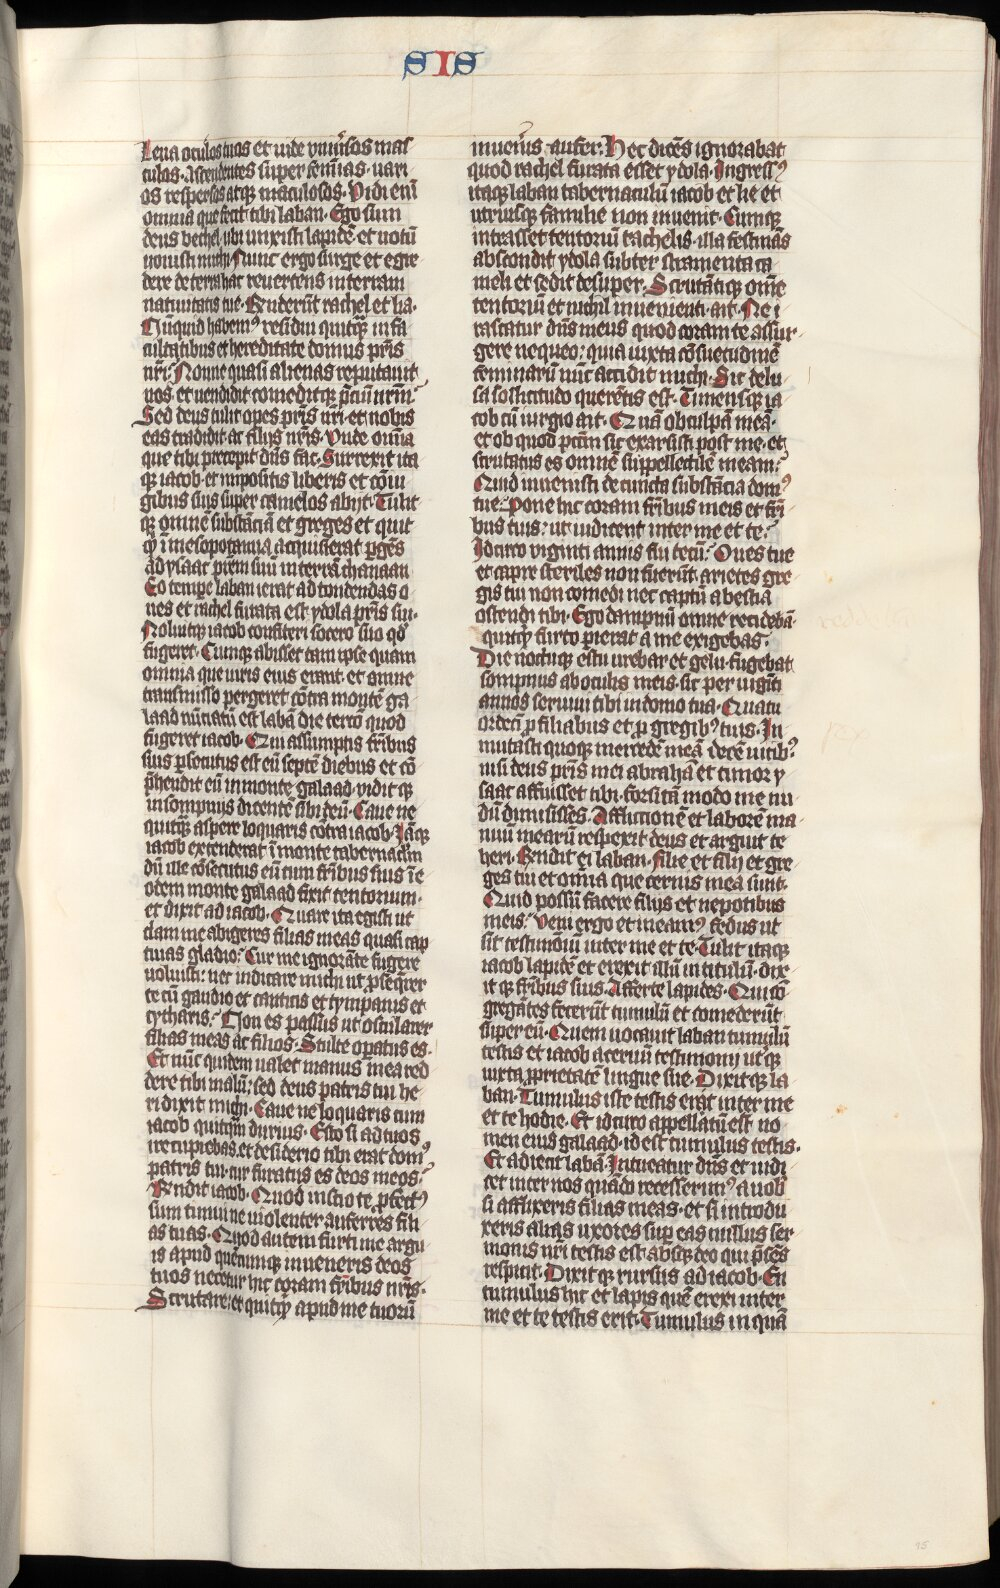 SIS
Leua oculos tuos et uide vniu̾sos mas
culos. Ascendentes super fem̄ias. uari
os respersos atqꝫ maculosos. Vidi enī
omnia que fecit tibi laban. Ego sum
deus bethel ubi unxisti lapidē et votū
vouisti michi. Nunc ergo surge et egre
dere de terra hac reuertens in terram
natiuitatis tue. R̄nderūt rachel et lia.
Nūquid habemꝰ residui quitqꝫ in fa
cultatibus et hereditate domus pr̄is
nr̄i? Nonne quasi alienas reputauit
nos et vendidit comeditqꝫ p̄ciū nr̄m?
Sed deus tulit opes pr̄is nr̄i. et nobis
eas tradidit. ac filijs nr̄is. Vnde omīa
que tibi precepit dn̄s fac. Surrexit ita
qꝫ iacob. et impositis liberis et cōiu
gibus suis super camelos abijt. Tulit
qꝫ omnē substāciā et greges et quit
qͥd ī mesopotamia acquisierat. pgēs
ad ysaac pr̄em suū in terrā chanaan
Eo tempe laban ierat ad tondendas o
ues et rachel furata est ydola pr̄is sui.
Noluitqꝫ iacob confiteri socero suo qd̾
fugeret. Cumqꝫ abisset tam ipse quam
omnia que iuris eius erant. et amne
transmisso pergeret cōtra montē ga
laad nūciatū est labā die tercio quod
fugeret iacob. Qui assumptis fr̄ibus
suis psecutus est eū septē diebus et cō
p̄hendit eū in monte galaad. vidit qꝫ
in sompnis dicentē sibi deū. Caue ne
quitqꝫ aspere loquaris cōtra iacob. Iāqꝫ
iacob extenderat ī monte tabernaclm̄
dū ille cōsecutus eū cum fr̄ibus suis ī e
odem monte galaad fixit tentorium.
et dixit ad iacob. Quare ita egisti ut
clam me abigeres filias meas quasi cap
tiuas gladio? Cur me ignorāte fugere
uoluisti: nec indicare michi ut pseq̄rer
te cū gaudio et canticis et tympanis et
cytharis? Non es passus ut oscularer
filias meas ac filios. Stulte opatus es.
Et nūc quidem ualet manus mea red
dere tibi malū: sed deus patris tui he
ri dixit michi. Caue ne loquaris cum
iacob quitqͣm durius. Esto si ad tuos
ire cupiebas. et desiderio tibi erat domꝰ
patris tui. cur furatus es deos meos?
R̄ndit iacob. Quod inscio te pfectꝰ
sum timui ne violenter auferres fili
as tuas. Quod autem furti me argu
is apud quēcumqꝫ inueneris deos
tuos necetur hic coram fr̄ibus nr̄is.
Scrutare: et quitqͥd apud me tuorū
inueīis aufer. Hec dicēs ignorabat
quod rachel furata esset ydola. Ingressꝰ
itaqꝫ laban tabernaculū iacob et lie et
utriusqꝫ familie non inuenit. Cumqꝫ
intrasset tentoriū rachelis. illa festināˢ
abscondit ydola subter stramenta ca
meli et sedit desuper. Scrutātiqꝫ om̄e
tentoriū et nichil inuenienti. ait. Ne i
rascatur dn̄s meus quod coram te assur
gere nequeo: quia iuxta cōsuetudinē
feminarū nūc accidit michi. Sic delu
sa sollicitudo querētis est. Timensqꝫ ia
cob cū iurgio ait. Quā ob culpā meā.
et ob quod pctm̄ sic exarsisti post me. et
scrutatus es omnē suppellectilē meam?
Quid inuenisti de cuncta substācia domꝰ
tue? Pone hic coram fr̄ibus meis et fr̄i
bus tuis: ut iudicent inter me et te?
Idcirco viginti annis fui tecū? Oues tue
et capre steriles non fuerūt. arietes gre
gis tui non comedi nec captū a bestia
ostendi tibi. Ego dampnū omne reddebā.
quitqͥd furto pierat a me exigebas.
Die noctuqꝫ estu urebar et gelu. fugebat
sompnus ab oculis meis. sic per viginti
annos seruiui tibi in domo tua. Quatu
ordecī p filiabus et p gregibꝰ tuis. In
mutasti quoqꝫ mercedē meā decē vicibꝰ
nisi deus pr̄is mei abrahā et timor y
saac affuisset tibi. forsitā modo me nu
dū dimisisses. Afflictionē et laborē ma
nuū mearū respexit deus et arguit te
heri. R̄ndit ei laban. filie et filij et gre
ges tui et omīa que cernis mea sunt.
Quid possū facere filijs et nepotibus
meis? Veni ergo et ineamꝰ fedus ut
sit testimōiū inter me et te. Tulit itaqꝫ
iacob lapidē et erexit illū in titulū. dix
it qꝫ fr̄ibus suis. Afferte lapides. Qui cō
gregātes fecerūt tumulū et comederūt
super eū. Quem vocauit laban tumulū
testis et iacob aceruū testimonij ut̾qꝫ
iuxta pprietatē lingue sue. Dixit qꝫ la
ban. Tumulus iste testis erat inter me
et te hodie. Et idcirco appellatū est no
men eius galaad. id est tumulus testis.
Et adiecit labā. Intueatur dn̄s et iudi
cet inter nos quādo recesserimꝰ a uob̄
si afflixeris filias meas. et si introdu
xeris alias uxores sup eas nullus ser
monis nr̄i testis est. absqꝫ deo qui p̄sēs
respicit. Dixit qꝫ rursus ad iacob. En
tumulus hic et lapis quē erexi inter
me et te testis erit. Tumulus in quā
15